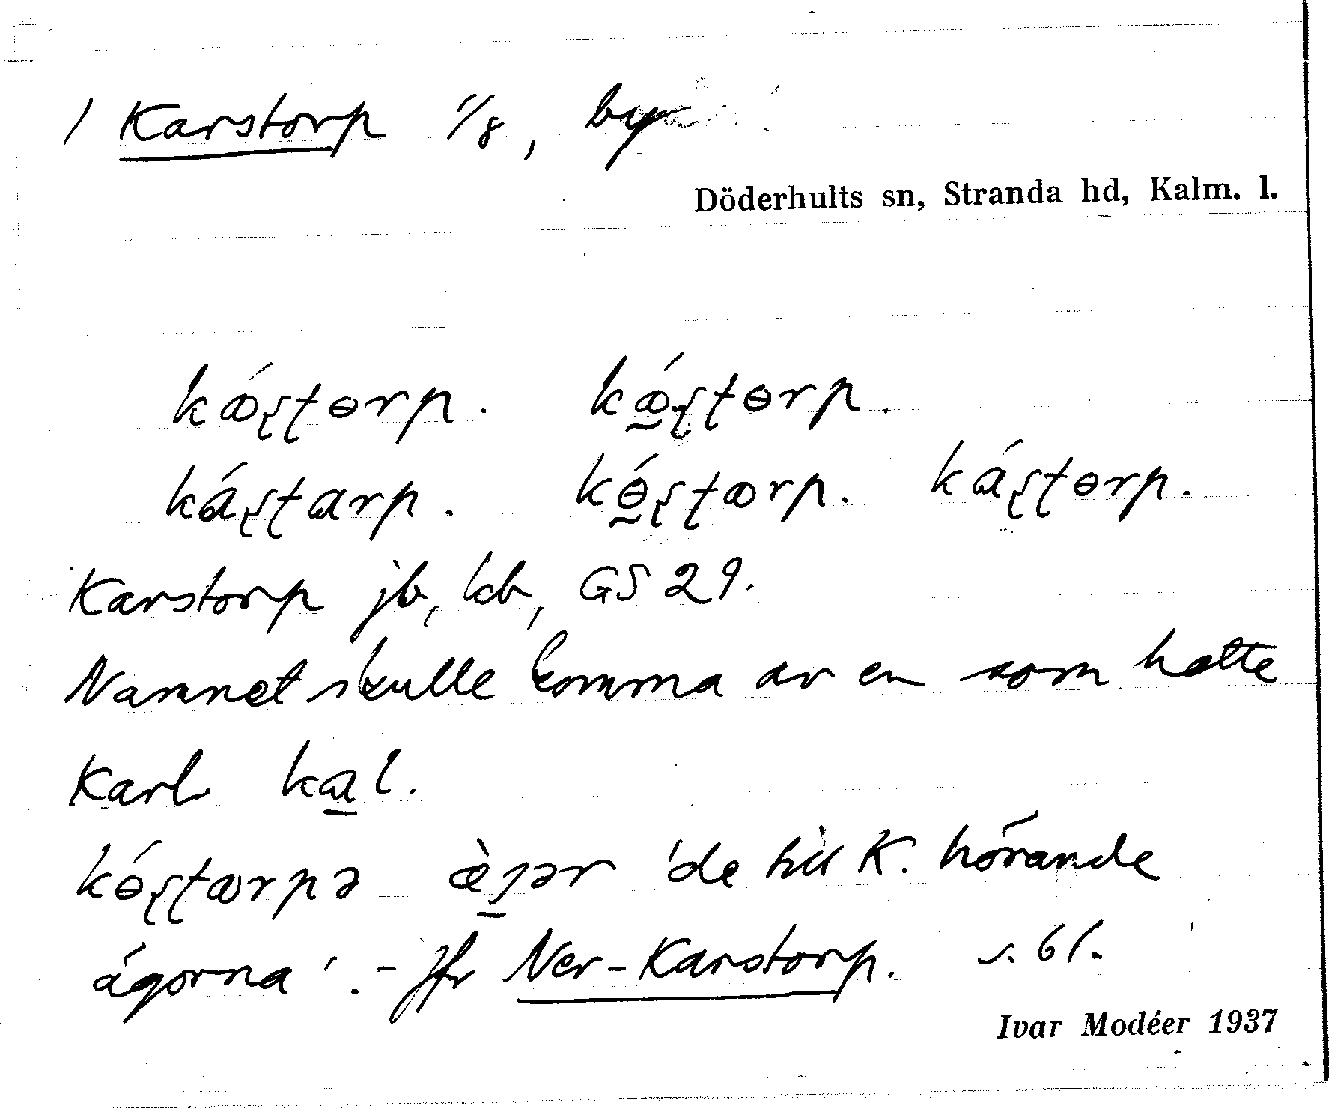 / Karstorp 1/8, by
Döderhults sn, Stranda hd, Kalm. l.
kǿʂʈɵrp. kǿ̠ʂʈɵrp.
káʂʈarp. kɵ̠́ʂʈærp. káʂʈɵrp.
Karstorp jb, kb, GS 29.
Namnet skulle komma av en som hette
Karl ka̠l.
kɵ́ʂʈærpə æ̠̀ɟər 'de till K. hörande
ägorna'. - Jfr Ner-Karstorp. s. 61.
Ivar Modéer 1937